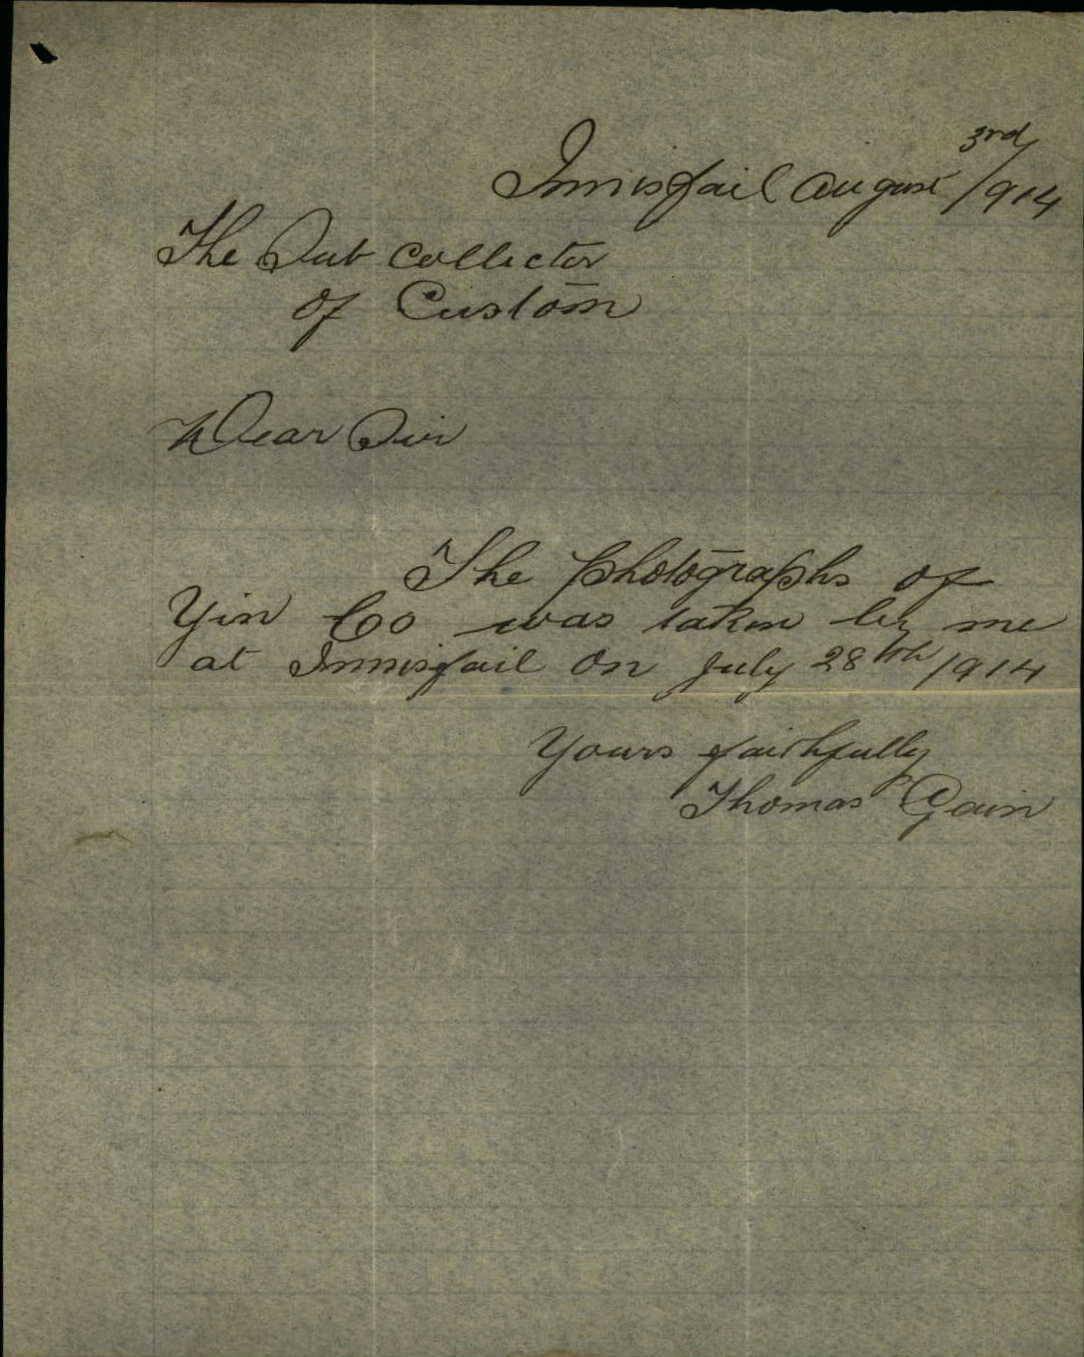 Innisfail August 3rd/1914
The Sub Collector
of Custom
Dear Sir
The photographs of
Yin Co was taken by me
at Innisfail On July 28th/1914
Yours faithfully
Thomas Gain